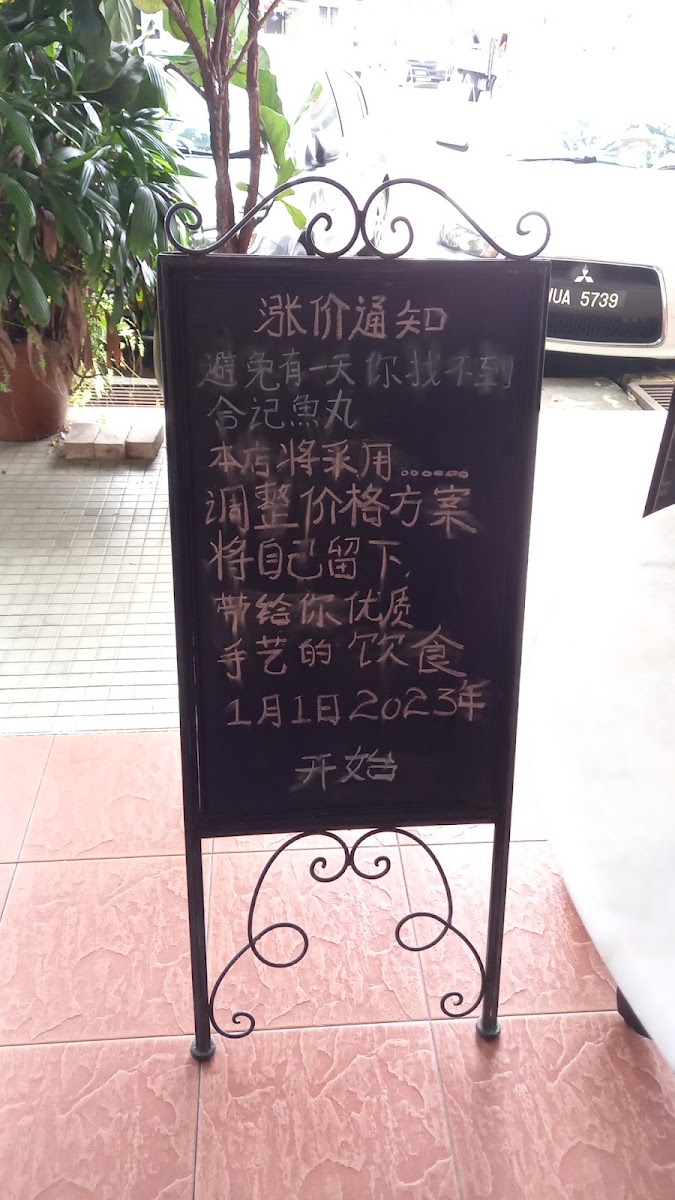 涨价通知
避免有一天你找不到
合记魚丸
本店将采用......
调整价格方案
将自己留下,
带给你优质
手艺的饮食
1月1日2023年
开始
WUA 5739